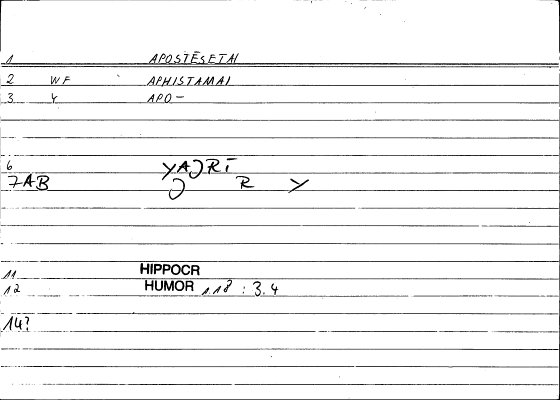 1 APOSTĒSETAI
2 WF APHISTAMAI
3 Y APO-
6 YAJRĪ
7AB J R Y
11 HIPPOCR
12 HUMOR 1.18 : 3.4
14?